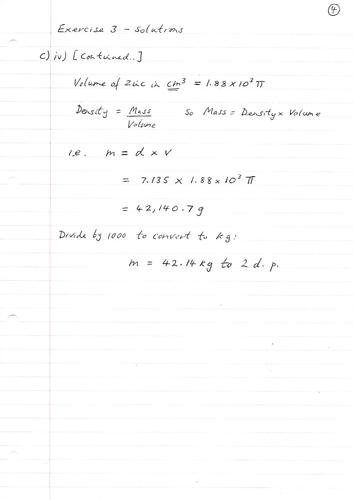 4
Exercise 3 - Solutions
c) iv) [Continued..]
Volume of Zinc in cm³ = 1.88 × 10³ π
Density = Mass / Volume So Mass = Density × Volume
i.e. m = d × v
= 7.135 × 1.88 × 10³ π
= 42,140.7 g
Divide by 1000 to convert to kg:
m = 42.14 kg to 2 d.p.